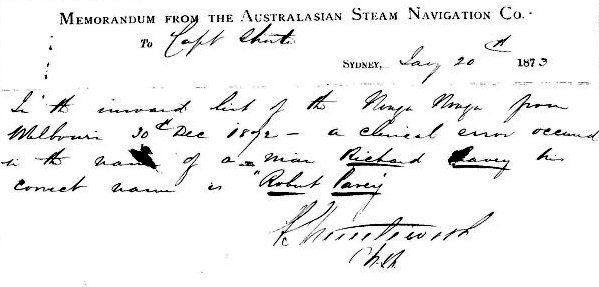 MEMORANDUM FROM THE AUSTRALASIAN STEAM NAVIGATION CO.
To Capt
SYDNEY, Jany 20th 1873
In the inward list of the Wonga Wonga from
Melbourne 30th Dec 1872 – a clerical error occurred
in the name of a man Richard Pavey his
correct name is "Robert Pavey